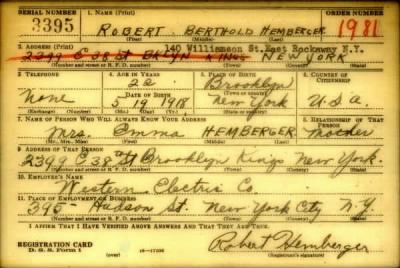 SERIAL NUMBER 1. NAME (Print) ORDER NUMBER
3395 ROBERT BERTHOLD HEMBERGER 1981
(First) (Middle) (Last)
2. ADDRESS (Print) 140 Williamson St. East Rockaway N.Y.
2399 E 38 St BKLYN KINGS NEW YORK
(Number and street or R. F. D. number) (Town) (County) (State)
3. TELEPHONE 4. AGE IN YEARS 5. PLACE OF BIRTH 6. COUNTRY OF CITIZENSHIP
22 Brooklyn
None DATE OF BIRTH (Town or county)
5 19 1918 New York U.S.A.
(Mo.) (Day) (Yr.) (State or country)
7. NAME OF PERSON WHO WILL ALWAYS KNOW YOUR ADDRESS 8. RELATIONSHIP OF THAT PERSON
Mrs. Emma HEMBERGER Mother
(Mr., Mrs., Miss) (First) (Middle) (Last)
9. ADDRESS OF THAT PERSON
2399 E 38 St Brooklyn Kings New York.
(Number and street or R. F. D. number) (Town) (County) (State)
10. EMPLOYER'S NAME
Western Electric Co.
11. PLACE OF EMPLOYMENT OR BUSINESS
395- Hudson St. New York City N.Y.
(Number and street or R. F. D. number) (Town) (County) (State)
I AFFIRM THAT I HAVE VERIFIED ABOVE ANSWERS AND THAT THEY ARE TRUE.
REGISTRATION CARD Robert Hemberger
D. S. S. Form 1 (over) 16-17105 (Registrant's signature)